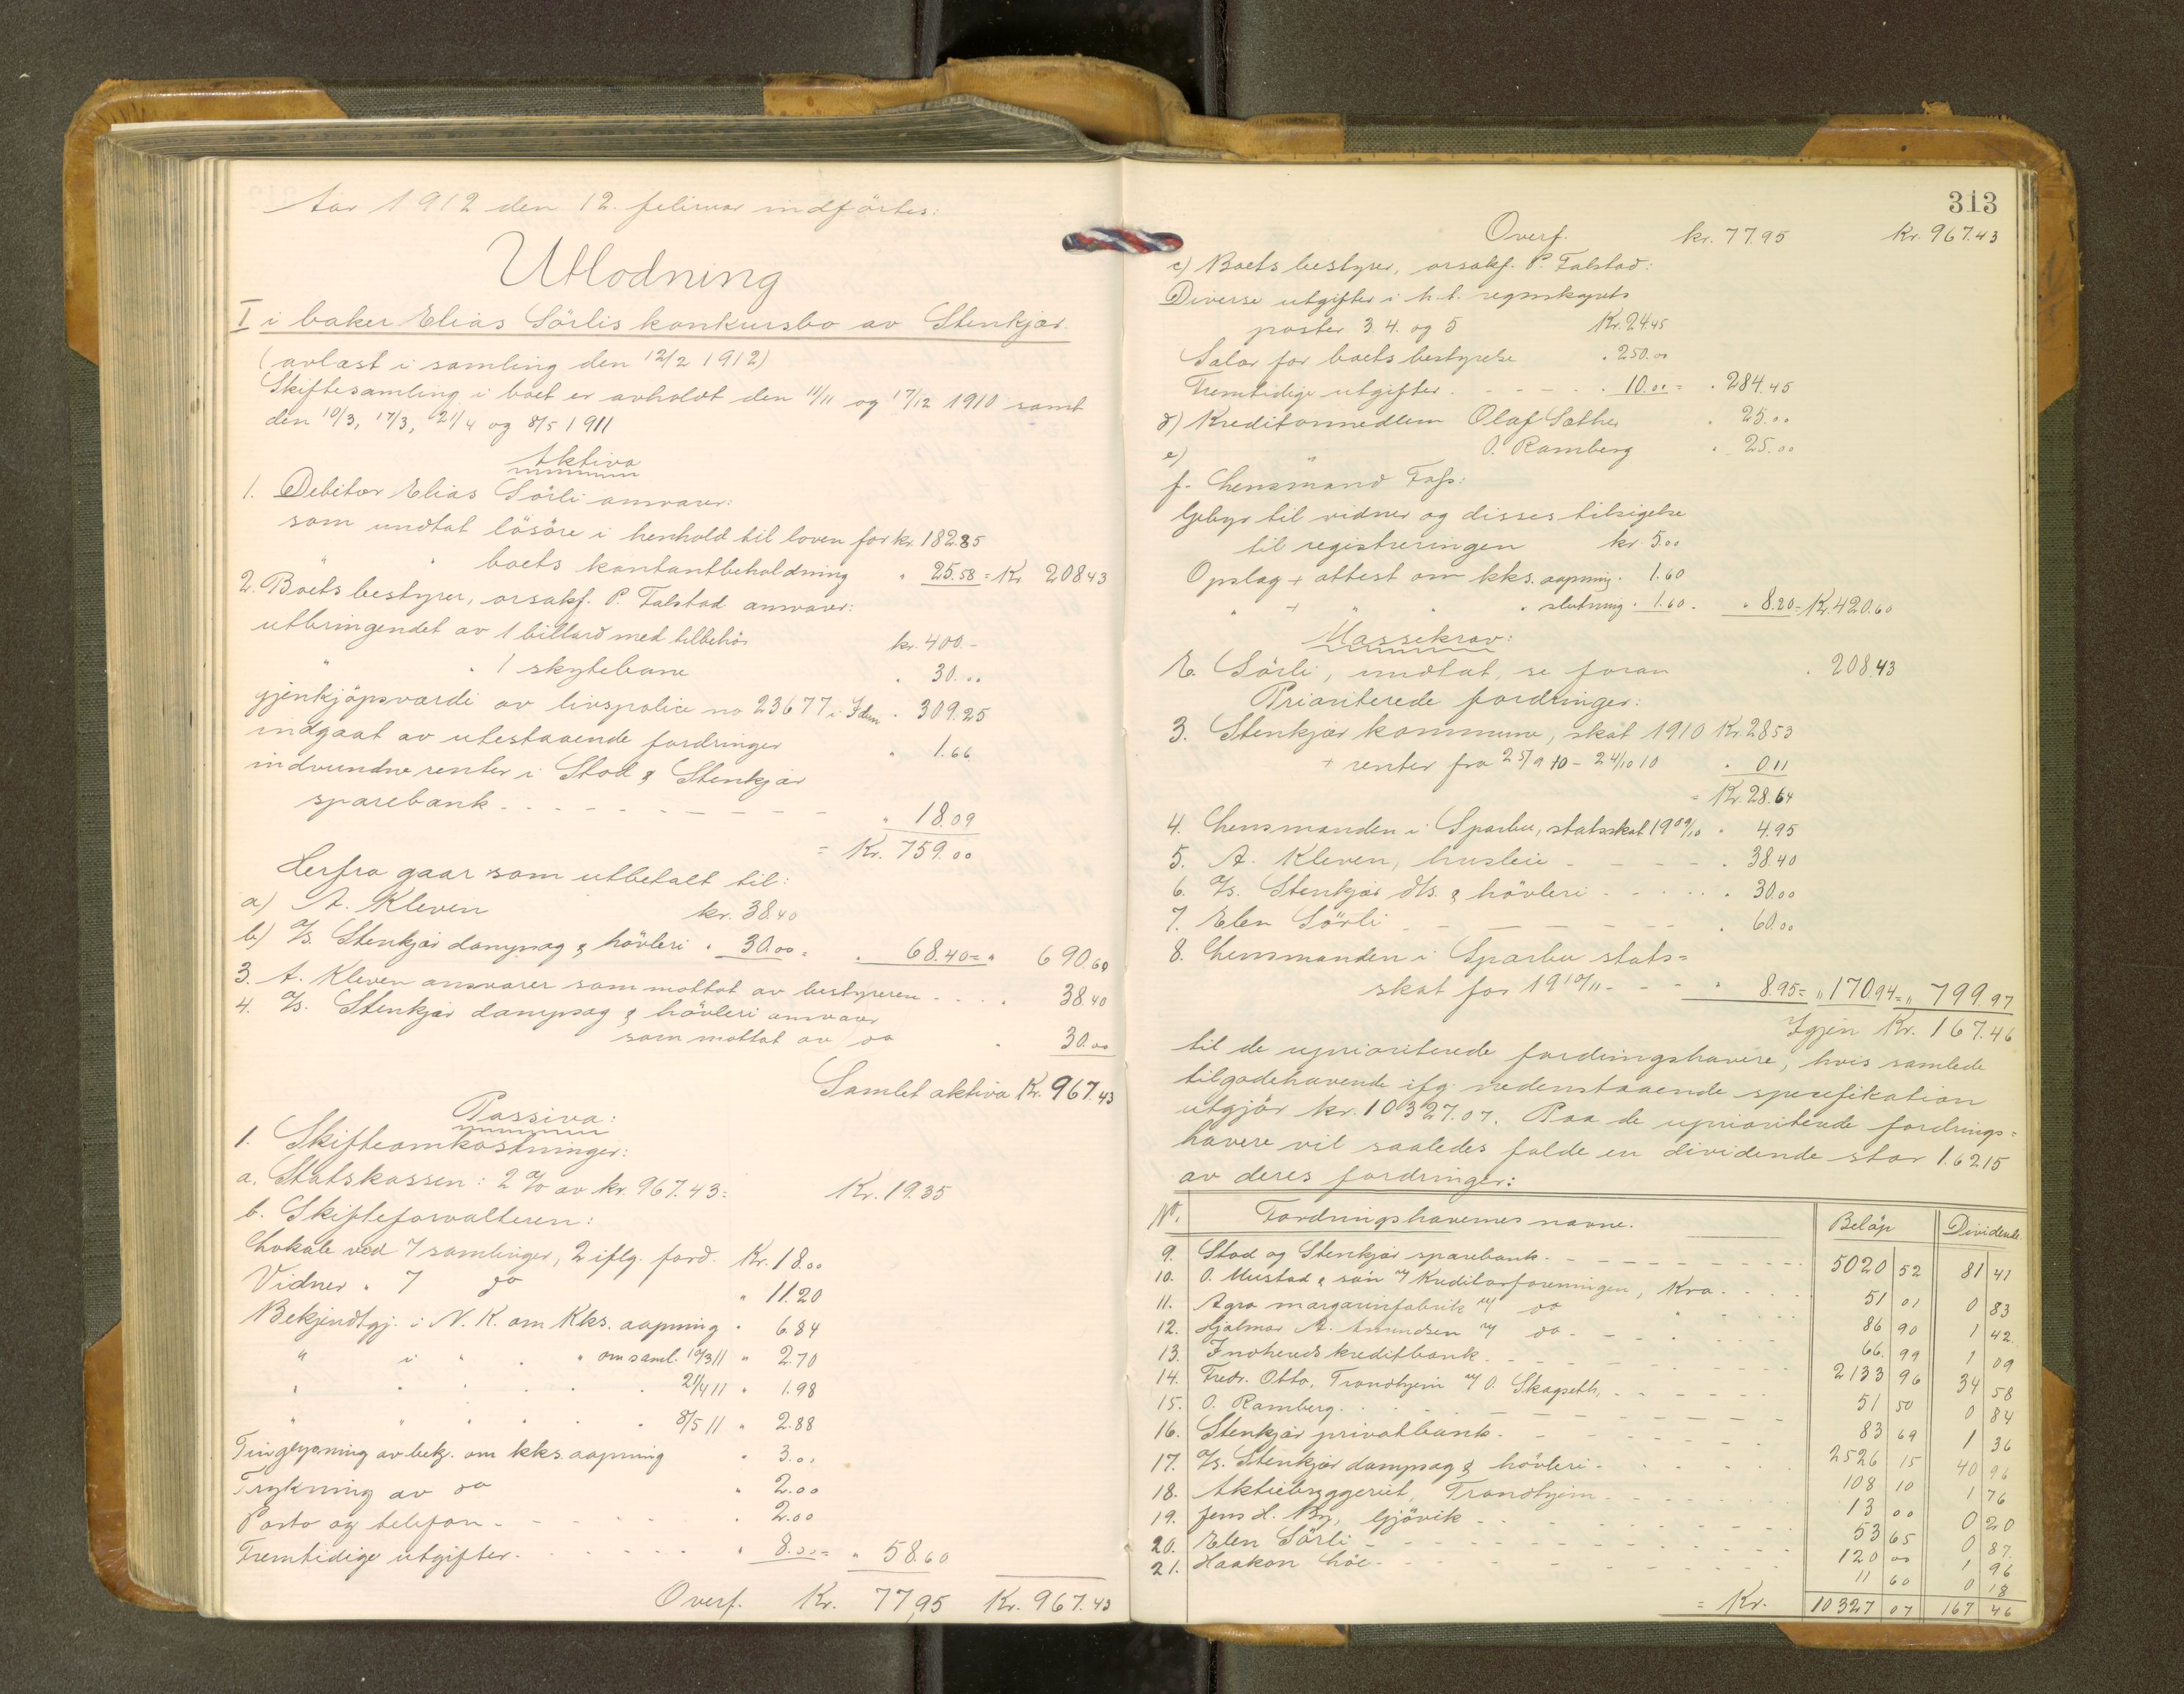 Aar 1912 den 12. februar indförtes:
Utlodning
I i baker Elias Sörlis konkursbo av Stenkjær.
(avlæst i samling den 12/2 1912)
Skiftesamling i boet er avholdt den 11/11 og 17/12 1910 samt
den 10/3, 17/3, 21/4 og 8/5 1911
Aktiva
1. Debitor Elias Sörli ansvarer:
som undtat lösöre i henhold til loven for kr. 182.85
" " boets kontantbeholdning " 25.58 = Kr. 208 43
2. Boets bestyrer, orsakf. P. Falstad ansvarer:
utbringendet av 1 billard med tilbehör kr. 400.-
" " 1 skytebane " 30.00
gjenkjöpsværdi av livspolice no 23677 i Idun " 309.25
indgaat av utestaaende fordringer " 1.66
indvundne renter i Stod & Stenkjær
sparebank - - - - " 18.09
= Kr. 759.00
Herfra gaar som utbetalt til:
a) A. Kleven kr. 38.40
b) A/s. Stenkjær dampsag & hövleri " 30.00 = " 68.40 = " 690.60
3. A. Kleven ansvarer som mottat av bestyreren - - - 38.40
4. A/s. Stenkjær dampsag & hövleri ansvarer
som mottat av do " 30.00
Samlet aktiva Kr. 967.43
Passiva:
1. Skifteomkostninger:
a. Statskassen: 2 % av kr. 967.43 = Kr. 19.35
b. Skifteforvalteren:
Lokale ved 7 samlinger, 2 iflg. ford. Kr. 18.00
Vidner " 7 do " 11.20
Bekjendtgj. i N. K. om Kks. aapning " 6.84
" i " " om saml. 10/3 11 " 2.70
" " " " " 21/4 11 " 1.98
" " " " " 8/5 11 " 2.88
Tinglysning av bekj. om kks. aapning " 3.00
Trykning av do " 2.00
Porto og telefon - - - - " 2.00
Fremtidige utgifter - - - - " 8.00 = " 58.60
Overf. Kr. 77.95 Kr. 967.43
313
Overf. kr. 77.95 Kr. 967.43
c) Boets bestyrer, orsakf. P. Falstad:
Diverse utgifter i h.t. regnskapets
poster 3. 4. og 5 Kr. 24.45
Salær for boets bestyrelse " 250.00
Fremtidige utgifter - - - " 10.00 = " 284.45
d) Kreditormedlem Olaf Sæther " 25.00
e) " O. Ramberg " 25.00
f. Lensmand Fass:
Gebyr til vidner og disses tilsigelse
til registreringen kr. 5.00
Opslag + attest om kks. aapning " 1.60
" + " " " slutning " 1.60 = " 8.20 = Kr. 420.60
Massekrav:
E. Sörli, undtat, se foran " 208.43
Prioriterede fordringer:
3. Stenkjær kommune, skat 1910 Kr. 28 53
+ renter fra 25/9 10 - 24/10 10 " 0 11
= Kr. 28.64
4. Lensmanden i Sparbu, statsskat 1909/10 " 4.95
5. A. Kleven, husleie - - - - " 38 40
6. A/s. Stenkjær ds. & hövleri - - - - " 30.00
7. Elen Sörli - - - - " 60.00
8. Lensmanden i Sparbu stats=
skat for 1910/11 - - - " 8.95 = " 170.94 = " 799 97
Igjen Kr. 167.46
til de uprioriterede fordringshavere, hvis samlede
tilgodehavende ifg. nedenstaaende spesefikation
utgjör kr. 10327.07. Paa de uprioriterede fordrings=
havere vil saaledes falde en dividende stor 1.6215
av deres fordringer:
No. Fordringshavernes navne. Belöp Dividende
9. Stod og Stenkjær sparebank - - - 5020 52 81 41
10. O. Mustad & sön v/ Kreditorforeningen, Kra. - - 51 01 0 83
11. Agra margarinfabrik v/ do 86 90 1 42
12. Hjalmar A. Amundsen v/ do - - - 66 99 1 09
13. Indherreds kreditbank - - - 2133 96 34 58
14. Fredr. Otto, Trondhjem v/ O. Skogseth - - - 51 50 0 84
15. O. Ramberg - - - 83 69 1 36
16. Stenkjær privatbank - - - 2526 15 40 96
17. A/s. Stenkjær dampsag & hövleri - - - 108 10 1 76
18. Aktiebryggeriet, Trondhjem - - - 13 00 0 20
19. Jens H. By, Gjövik - - - 53 65 0 87
20. Elen Sörli - - - 120 00 1 96
21. Haakon Löe - - - 11 60 0 18
= Kr. 10327 07 167 46